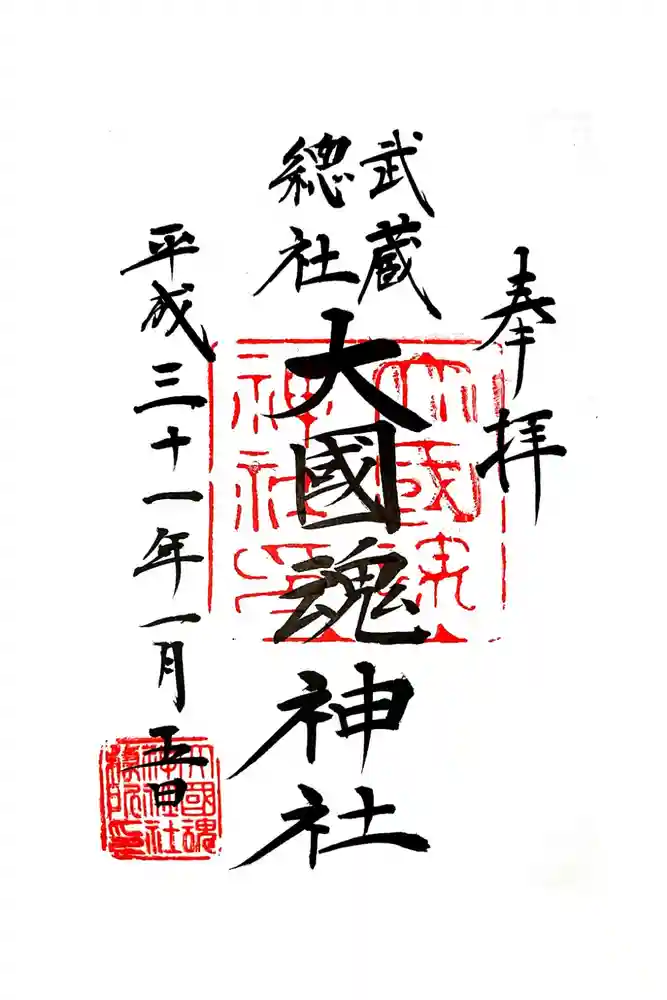 奉拝
武蔵
總社
大國魂神社
平成三十一年一月五日
大國魂
神社印
大國魂
神社